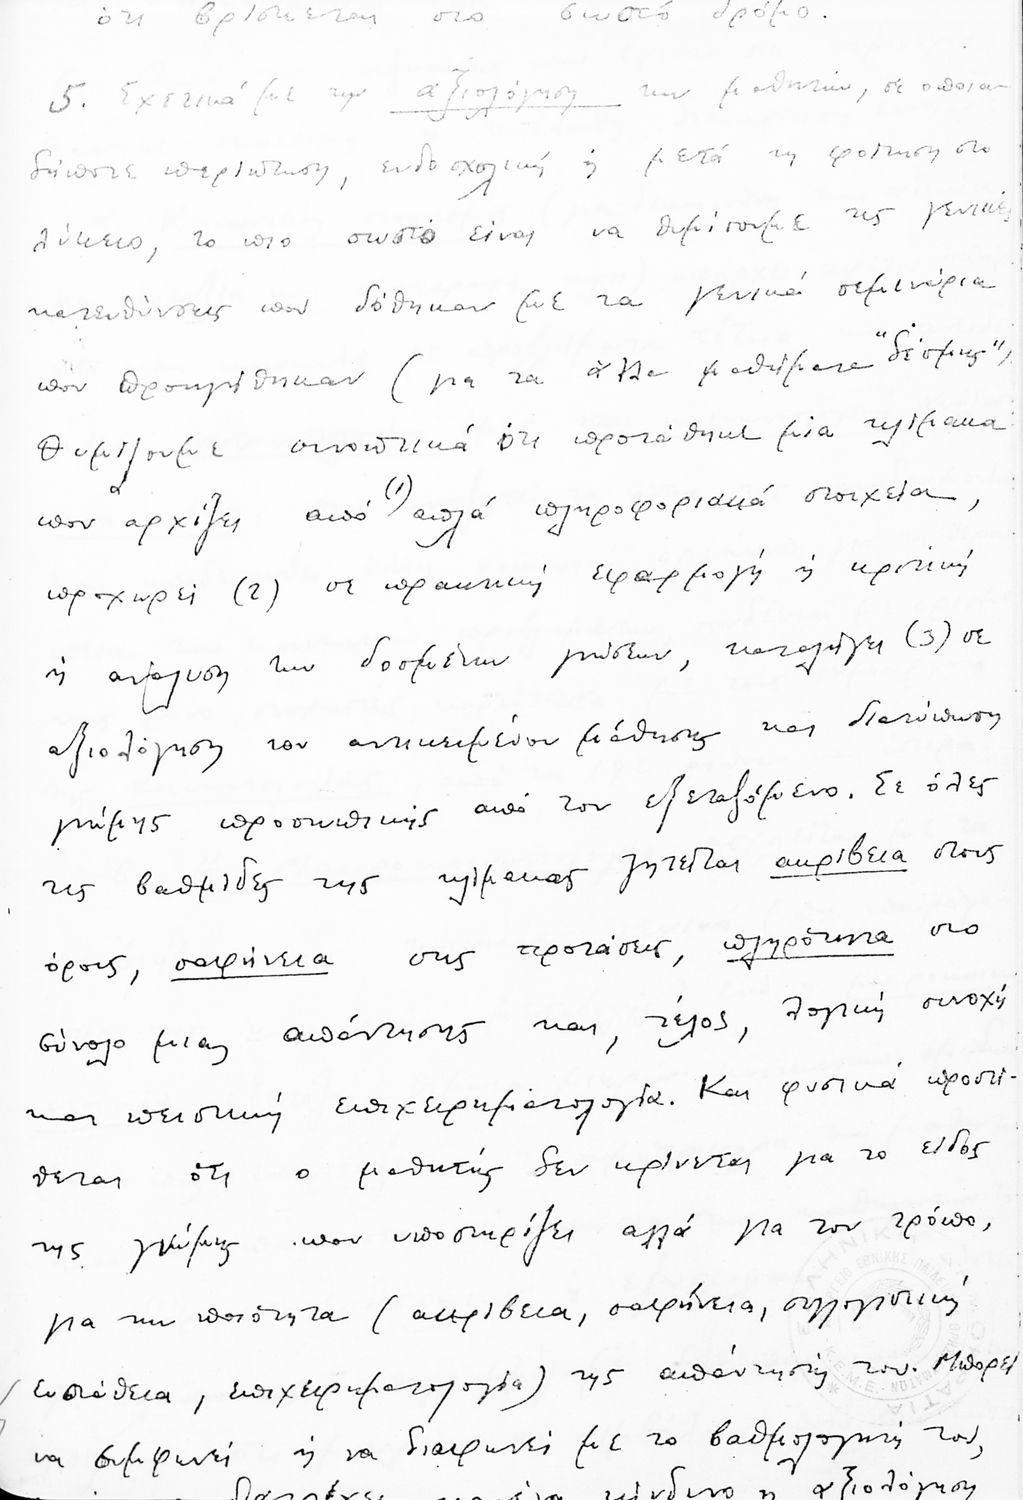 ότι βρίσκεται στο σωστό δρόμο.
5. Σχετικά με την αξιολόγηση των μαθητών, σε οποια-
δήποτε περίπτωση, ενδοσχολική ή μετά τη φοίτηση στο
λύκειο, το πιο σωστό είναι να θυμίσουμε τις γενικές
κατευθύνσεις που δόθηκαν με τα γενικά σεμινάρια
που προηγήθηκαν (για τα άλλα μαθήματα "δέσμης").
Θυμίζουμε συνοπτικά ότι προτάθηκε μία κλίμακα
που αρχίζει από (1) απλά πληροφοριακά στοιχεία,
προχωρεί (2) σε πρακτική εφαρμογή ή κριτική
ή ανάλυση των δοσμένων γνώσεων, καταλήγει (3) σε
αξιολόγηση του αντικειμένου μάθησης και διατύπωση
γνώμης προσωπικής από τον εξεταζόμενο. Σε όλες
τις βαθμίδες της κλίμακας ζητείται ακρίβεια στους
όρους, σαφήνεια στις προτάσεις, πληρότητα στο
σύνολο μιας απάντησης και, τέλος, λογική συνοχή
και πειστική επιχειρηματολογία. Και φυσικά προστί-
θεται ότι ο μαθητής δεν κρίνεται για το είδος
της γνώμης που υποστηρίζει αλλά για τον τρόπο,
για την ποιότητα (ακρίβεια, σαφήνεια, συλλογιστική
ευστάθεια, επιχειρηματολογία) της απάντησής του. Μπορεί
να συμφωνεί ή να διαφωνεί με το βαθμολογητή του,
διατρέχει κίνδυνο η αξιολόγηση
ΕΛΛΗΝΙΚΗ ΔΗΜΟΚΡΑΤΙΑ